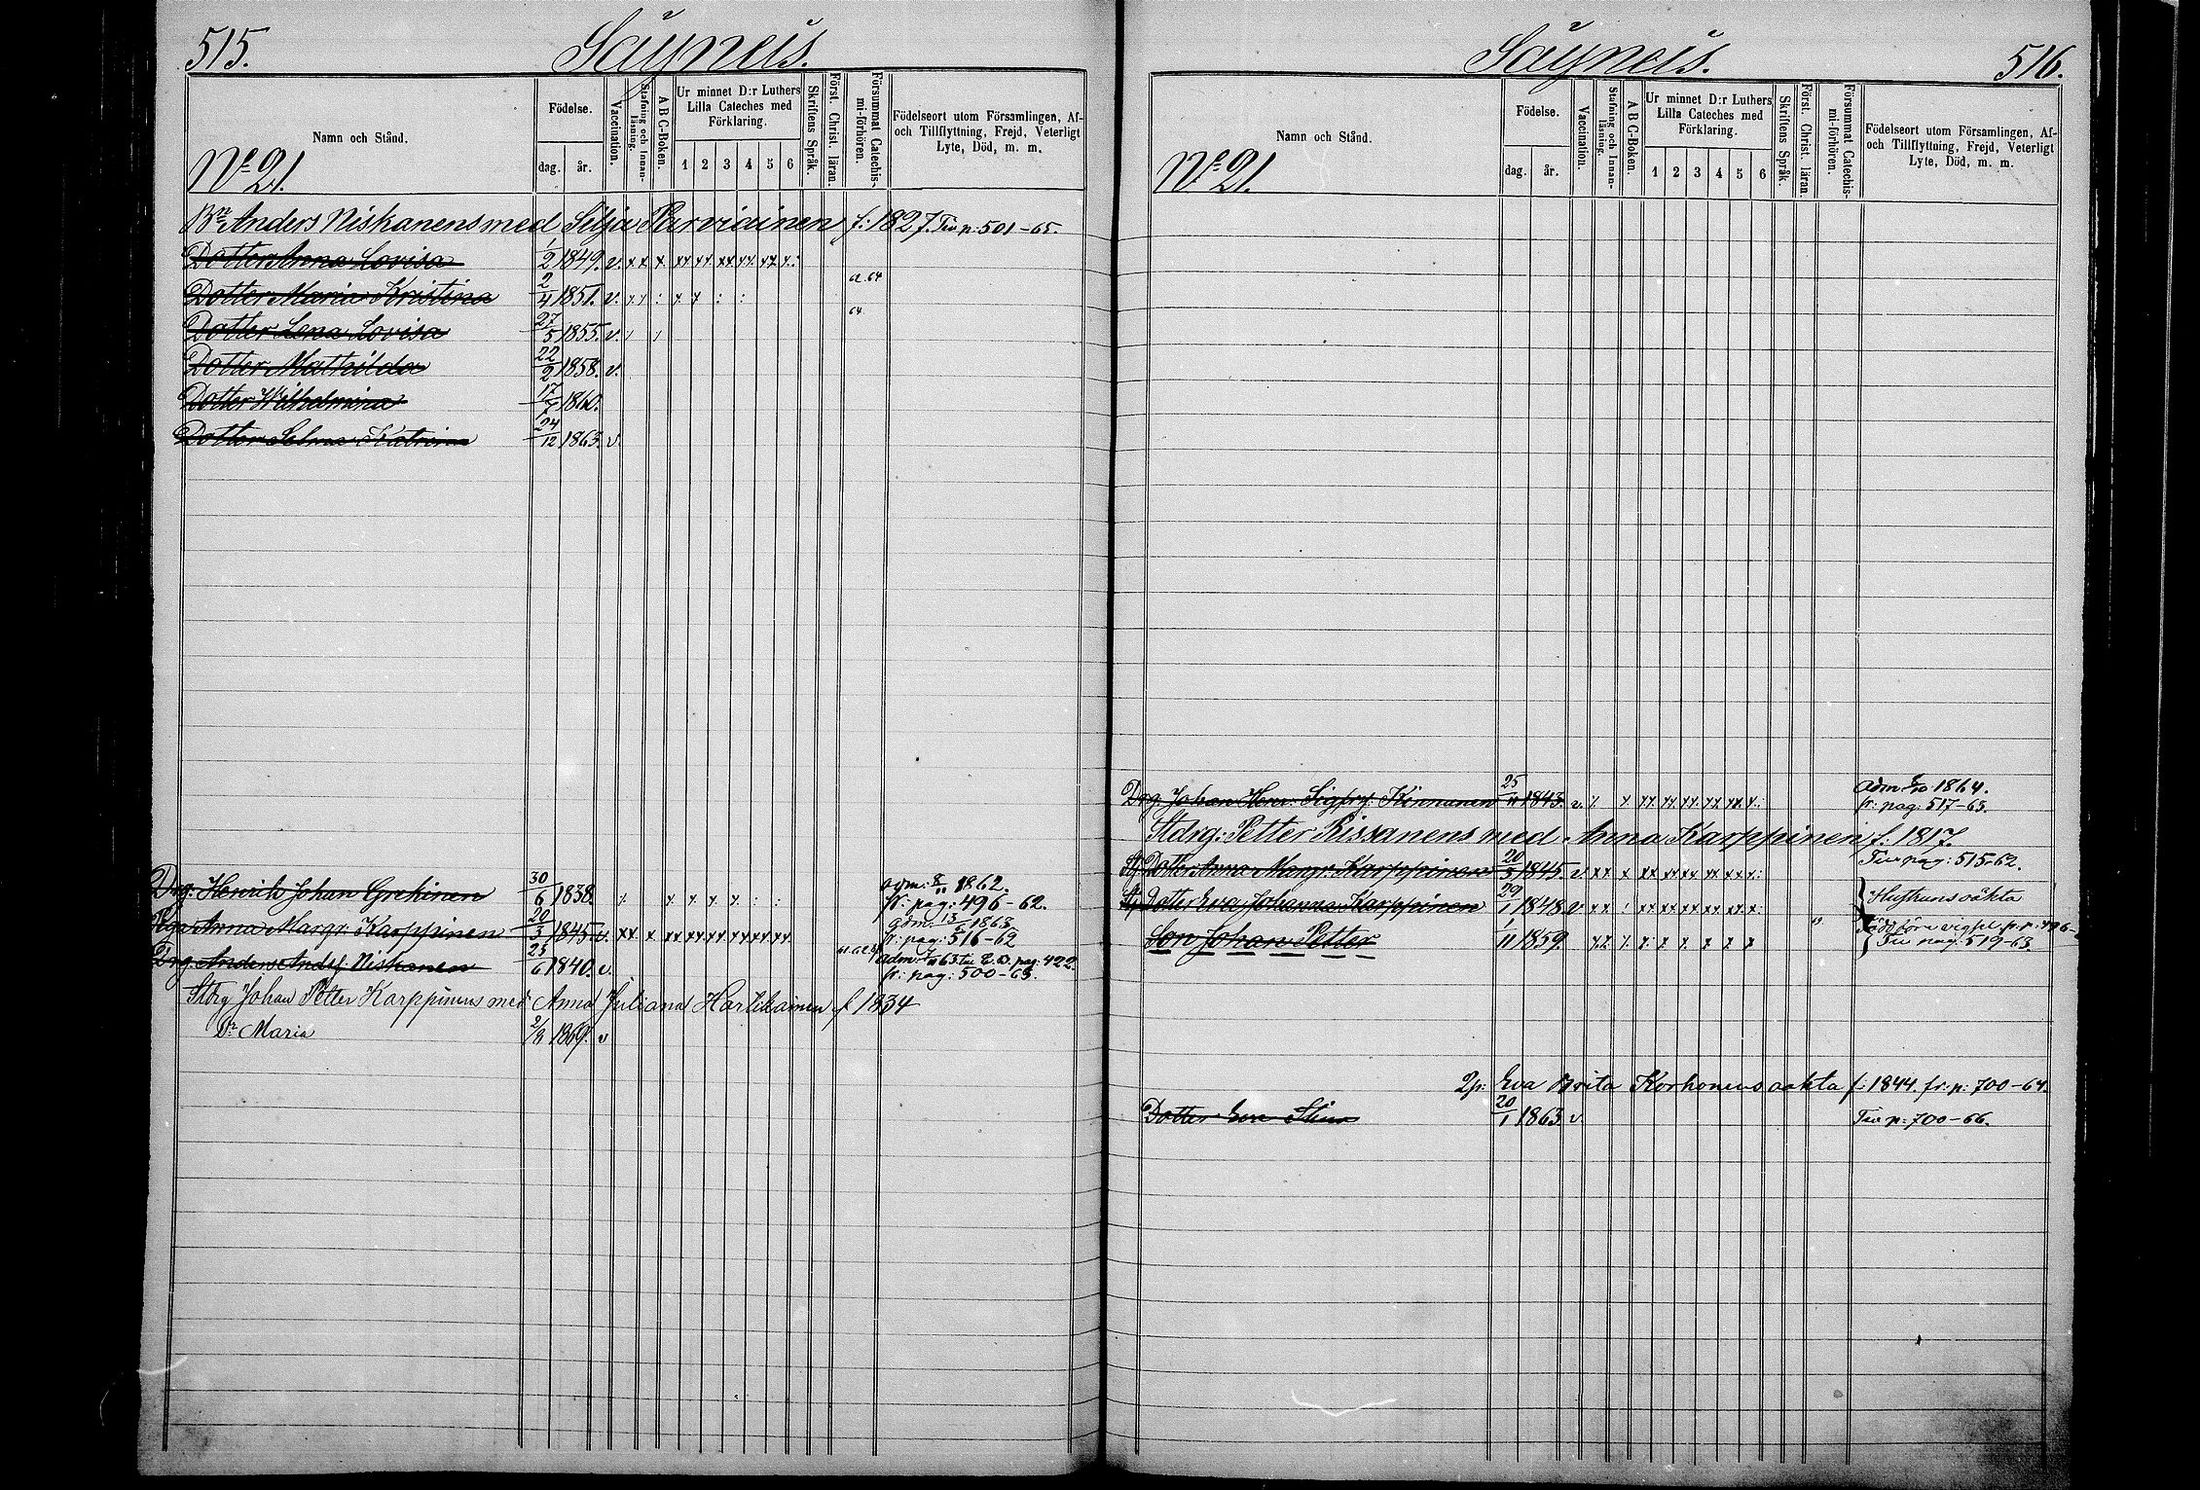 515.
Säyneis.
Namn och Stånd.
Födelse.
dag.
år.
Vaccination.
Stafning och Innan-läsning.
A B C-Boken.
Ur minnet D:r Luthers
Lilla Cateches med
Förklaring.
1 2 3 4 5 6
Skriftens Språk.
Först. Christ. läran.
Försummat Catechis-mi-förhören.
Födelseort utom Församlingen, Af-
och Tillflyttning, Frejd, Veterligt
Lyte, Död, m. m.
No 21.
Anders Niskanens med Silja Parviainen f: 1827. Tu p: 501-65.
Dotter Anna Lovisa 1/2 1849. v. x x x xx xx xx xx xx x:
Dotter Maria Kristina 2/4 1851. v.
Dotter Lena Lovisa 27/5 1855. v.
Dotter Mathilda 22/2 1858. v.
Dotter Wilhelmina 17/7 1860.
Dotter Selma Katrina 24/12 1863. v.
Drg: Henrik Johan 30/6 1838. 1862.
fr: pag: 496-62.
Anna Margr: Karppinen 20/3 1845. v. 1863
fr: pag: 516-62
Drg: Anders Niskanen 25/6 1840. v. pag: 422.
fr: pag: 500-63.
Stdrg Johan Petter Karppinens med Anna Juliana Hartikainen f 1834
Dr Maria 1869. v
Säyneis.
516.
Namn och Stånd.
Födelse.
dag.
år.
Vaccination.
Stafning och Innan-läsning.
A B C-Boken.
Ur minnet D:r Luthers
Lilla Cateches med
Förklaring.
1 2 3 4 5 6
Skriftens Språk.
Först. Christ. läran.
Försummat Catechis-mi-förhören.
Födelseort utom Församlingen, Af-
och Tillflyttning, Frejd, Veterligt
Lyte, Död, m. m.
No 21.
Drg: Johan Henr: Sigfr: Kinnunen 25/11 1843. v. adm. 1864.
fr: pag: 517-63.
Stdrg: Petter Rissanens med Anna Karppinen f. 1817.
Dotter Anna Margr: Karppinen 20/3 1845. v. Tu pag: 515-62.
Dotter Eva Johanna Karppinen 29/1 1848. v
Son Johan Petter 1/11 1859.
Tu pag: 519-63
Eva Brita Korhonens oäkta f: 1844. fr: p: 700-64.
Dotter Eva 20/1 1863. v. Tu p: 700-66.